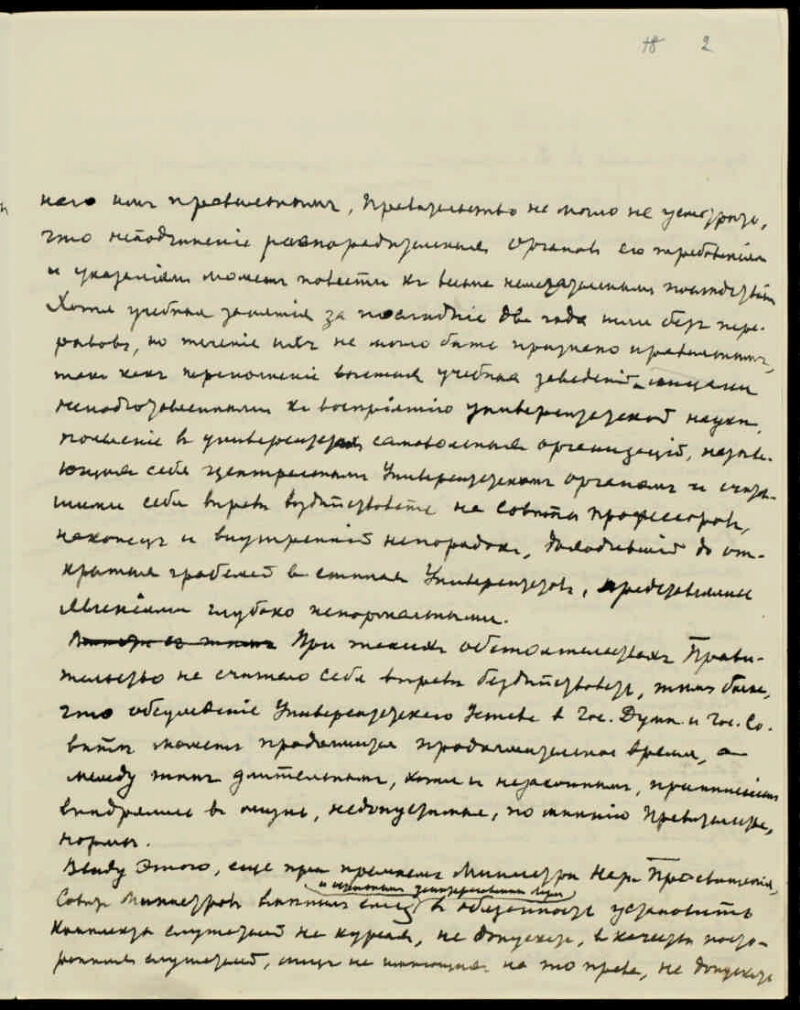 18 2
него или правильным, Правительство не могло не усмотреть,
что неподчинение распорядительных органов его требованиям
и указаниям может повести к весьма нежелательным последствиям
Хотя учебныя занятія за последніе два года шли без пере-
рывов, но теченіе их не могло быть признано правильным,
так как переполненіе высших учебных заведеній лицами
неподготовленными к воспріятію университетской науки,
появленіе в университетах самовольных организацій, называ-
ющих себя центральным Университетским органом и считав-
шими себя вправе воздействовать на Советы профессоров,
наконец и внутренній непорядок, доходившій до от-
крытых грабежей в стенах Университетов, представлялись
явленіями глубоко ненормальными.
При таких обстоятельствах Прави-
тельство не считало себя вправе бездействовать, тем более,
что обсужденіе Университетского Устава в Гос. Думе и Гос. Со-
вете может продлиться продолжительное время, а
между тем длительным, хотя и незаконным, применением
внедрялись в жизнь, недопустимые, по мнению Правительства,
нормы.
Ввиду этого, еще при прежнем Министре Нар. Просвещения,
Совет Министров вменил в обязанность установить
комплект слушателей на курсах, не допускать, в качестве посто-
ронних слушателей, лиц не имеющих на то права, не допускать